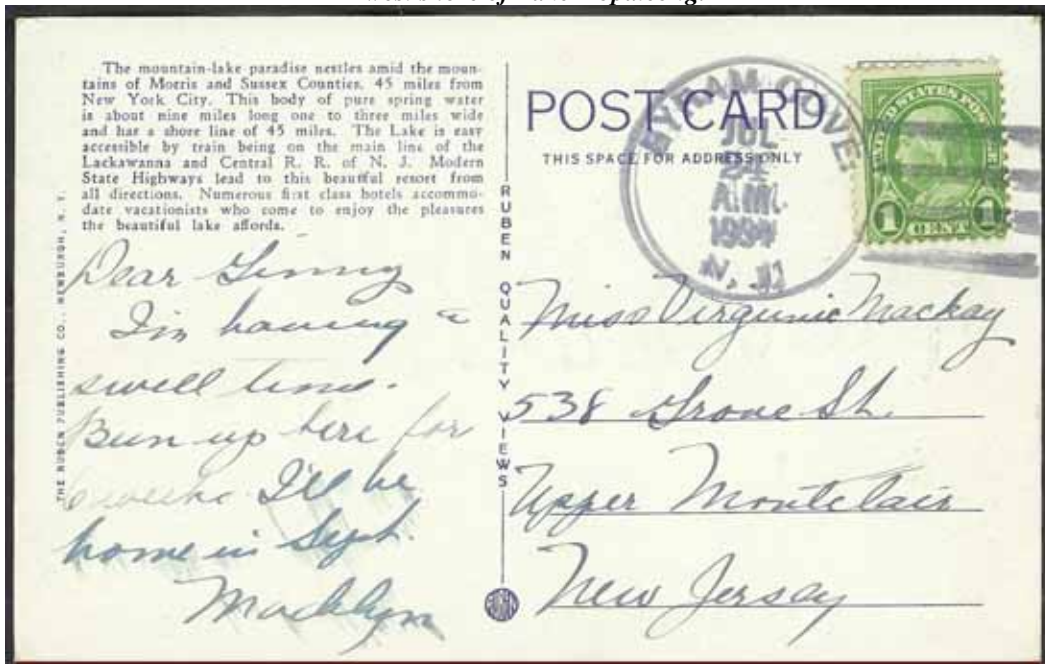 The mountain-lake paradise nestles amid the moun-
tains of Morris and Sussex Counties. 45 miles from
New York City. This body of pure spring water
is about nine miles long one to three miles wide
and has a shore line of 45 miles. The Lake is easy
accessible by train being on the main line of the
Lackawanna and Central R. R. of N. J. Modern
State Highways lead to this beautful resort from
all directions. Numerous first class hotels accommo-
date vacationists who come to enjoy the pleasures
the beautiful lake affords.
Dear Ginny
I'm having a
swell time.
Been up here for
weeks I'll be
home in Sept.
Madelyn
THE RUBEN PUBLISHING CO., NEWBURGH, N. Y.
RUBEN QUALITY VIEWS
POST CARD
THIS SPACE FOR ADDRESS ONLY
BYRAM COVE.
JUL
24
A.M.
N. J.
UNITED STATES POSTAGE
1 CENT 1
Miss Virginia Mackay
538 Grove St.
Upper Montclair
New Jersey